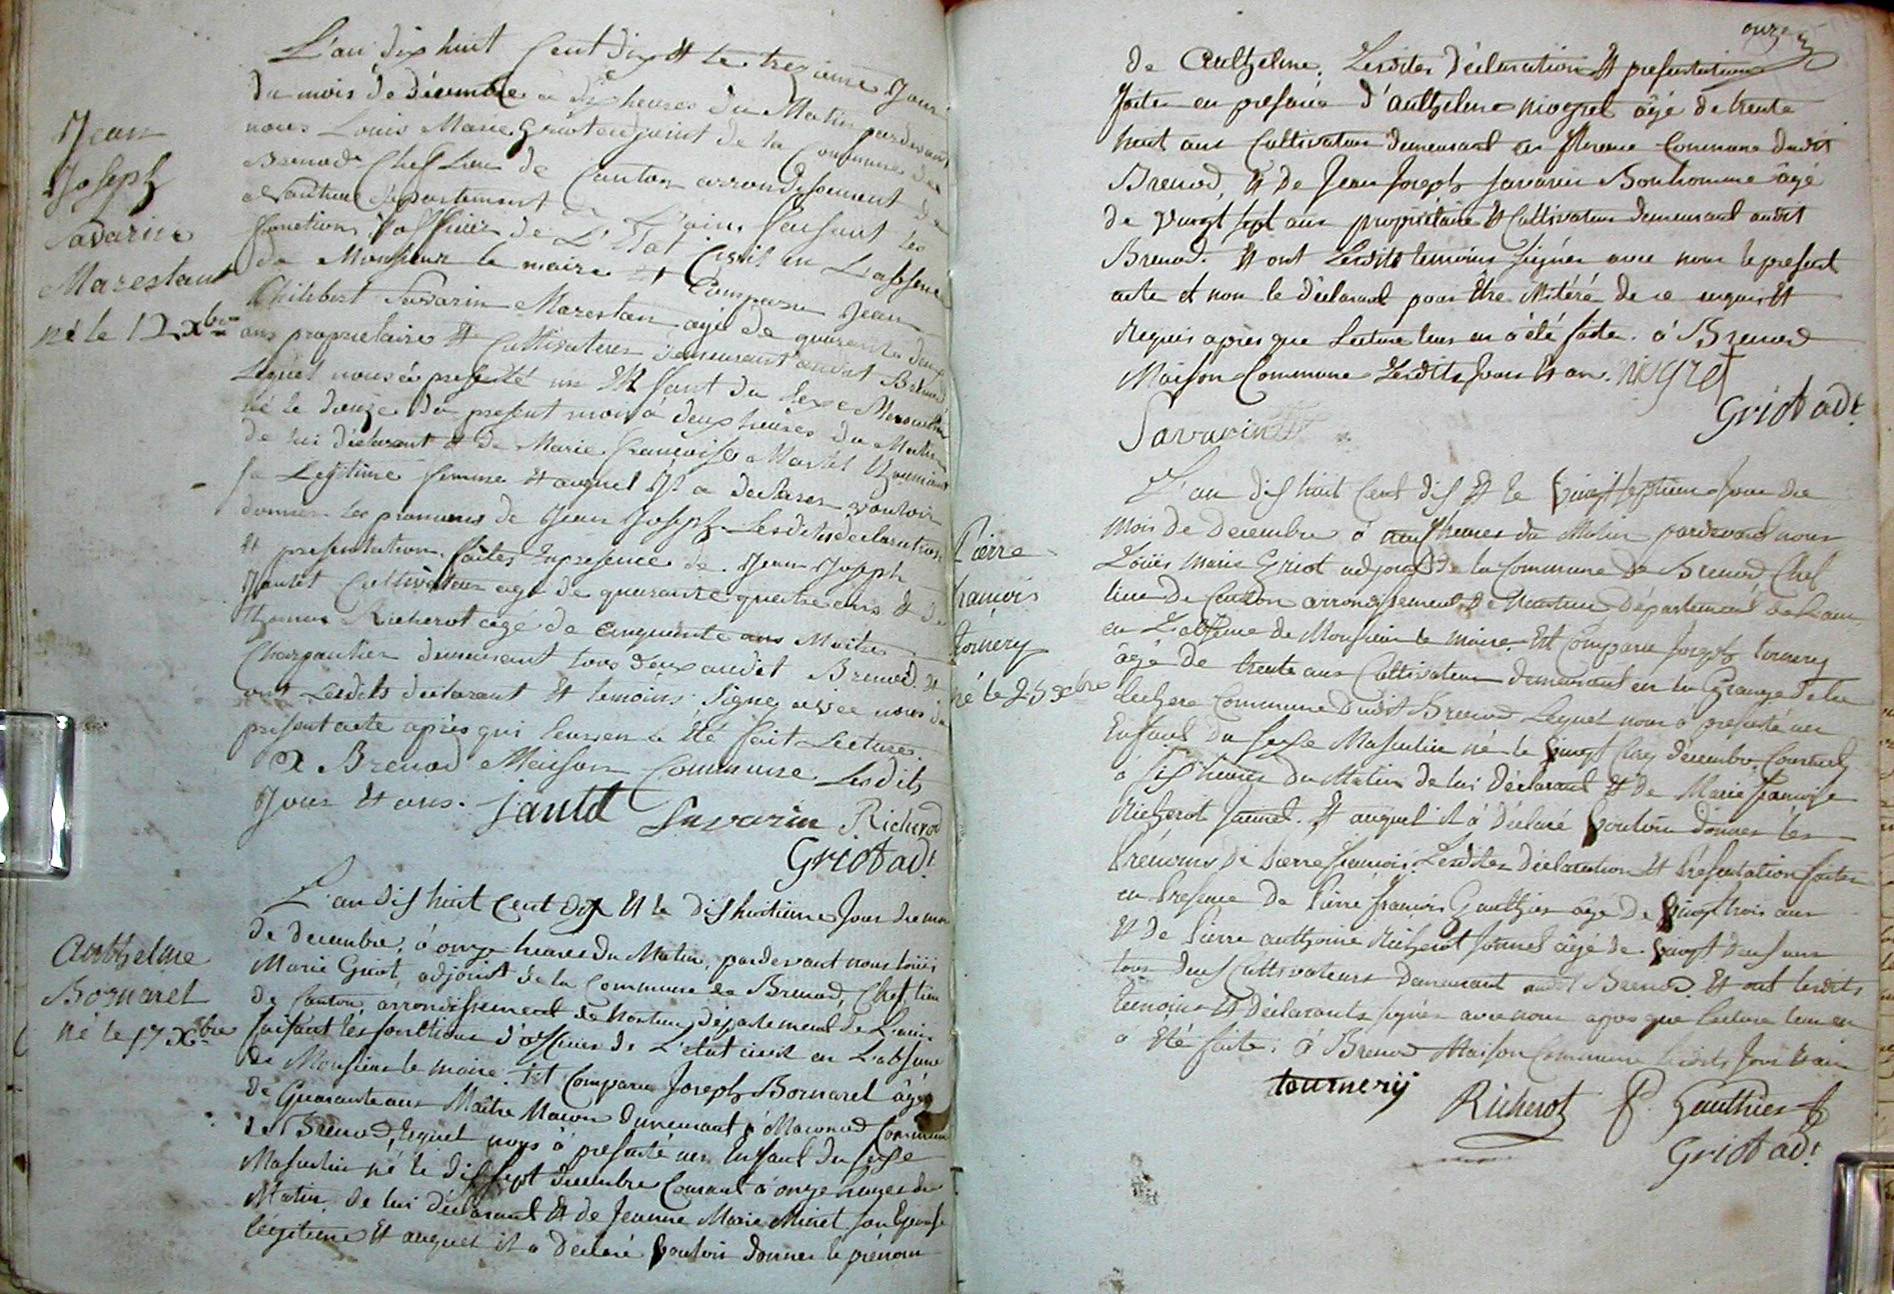 Jean
Joseph
Savarin
Marestan
né le 12 xbre
L'an dix huit Cent dix et le trezieme Jour
du mois de décembre à dix heures du Matin pardevant
nous Louis Marie Griot adjoint de la Commune de
Brenod Chef Lieu de Canton arrondissement de
Nantua département de L'ain, faisant les
fonctions d'officier de L'Etat Civil en L'absence
de Monsieur le maire est Comparu Jean
Philibert Savarin Marestan agé de quarante deux
ans proprietaire et Cultivateur demeurant audit Brenod
Lequel nous à presenté un Enfant du sexe Masculin
né le douze du present mois à deux heures du Matin
de lui déclarant et de Marie françoise Martel
sa Legitime femme et auquel Il a declarer vouloir
donner les prenoms de Jean Joseph Lesdites declaration
et presentation faites En presence de Jean Joseph
Jantet Cultivateur agé de quarante quatre ans et de
Thomas Richerot agé de Cinquante ans Maitre
Charpantier demeurant tous deux audit Brenod et
ont Lesdits declarant et temoins Signe avec nous le
present acte après qui leur en a été fait Lecture
à Brenod Maison Commune Lesdits
Jour et ans. Jantet Savarin Richerod
Griot adt
Anthelme
Bornarel
né le 17 Xbre
L'an dis huit Cent dix et le dishuitieme Jour du mois
de decembre, à onze heures du Matin, pardevant nous Loüis
Marie Griot, adjoint de la Commune de Brenod, Chef lieu
de Canton, arrondissement de Nantua, département de L'ain
faisant les fonctions d'officier de L'état civil en L'absence
de Monsieur le maire. Est Comparu Joseph Bornarel âgé
de Quarante ans Maître Macon demeurant à Maconod Commune
de Brenod, lequel nous à presenté un Enfant du sexe
Masculin né le dis sept decembre Courant à onze heures du
Matin, de lui déclarant et de Jeanne Marie Miret son Epouse
légitime et auquel il a declaré vouloir donner le prénom
onze
de Anthelme. Lesdites déclaration et presentation
faites en presence d'anthelme niogret âgé de trente
huit ans Cultivateur demeurant en Commune dudit
Brenod, et de Jean Joseph Savarin Bonhomme âgé
de vingt sept ans propriétaire et Cultivateur demeurant audit
Brenod. Et ont Lesdits temoins signés avec nous le present
acte et non le déclarant pour être illitéré de ce enquis et
requis après que Lecture leur en à été faite. à Brenod
Maison Commune Lesdits Jour et an. niogret
Griot adt
Savarin
Pierre
françois
tornery
né le 25 xbre
L'an dis huit Cent dis et le vingt septieme Jour du
mois de decembre à neuf heures du Matin pardevant nous
Loüis Marie Griot adjoint de la Commune de Brenod Chef
lieu de Canton arrondissement de Nantua Département de L'ain
en L'absence de Monsieur le maire. Est Comparu Joseph tornery
âgé de trente ans Cultivateur demeurant en la Grange de la
lechere Commune dudit Brenod Lequel nous a presenté un
Enfant du sexe Masculin né le vingt Cinq décembre Courant
à six heures du Matin de lui Déclarant et de Marie françoise
Richerot Jaunel. Et auquel il à déclaré vouloir donner les
Prénoms de Pierre françois. Lesdites déclaration et Présentation faites
en Presence de Pierre françois Gauthier âgé de vingt trois ans
et de Pierre anthoine Richerot Jonnel âgé de vingt deux ans
tous deux Cultivateurs demeurant audit Brenod. Et ont lesdits
temoins et déclarants signés avec nous apres que lecture leur en
a été faite, à Brenod Maison Commune Lesdits Jour et an
tournerÿ
Richerot P. Gauthier
Griot adt